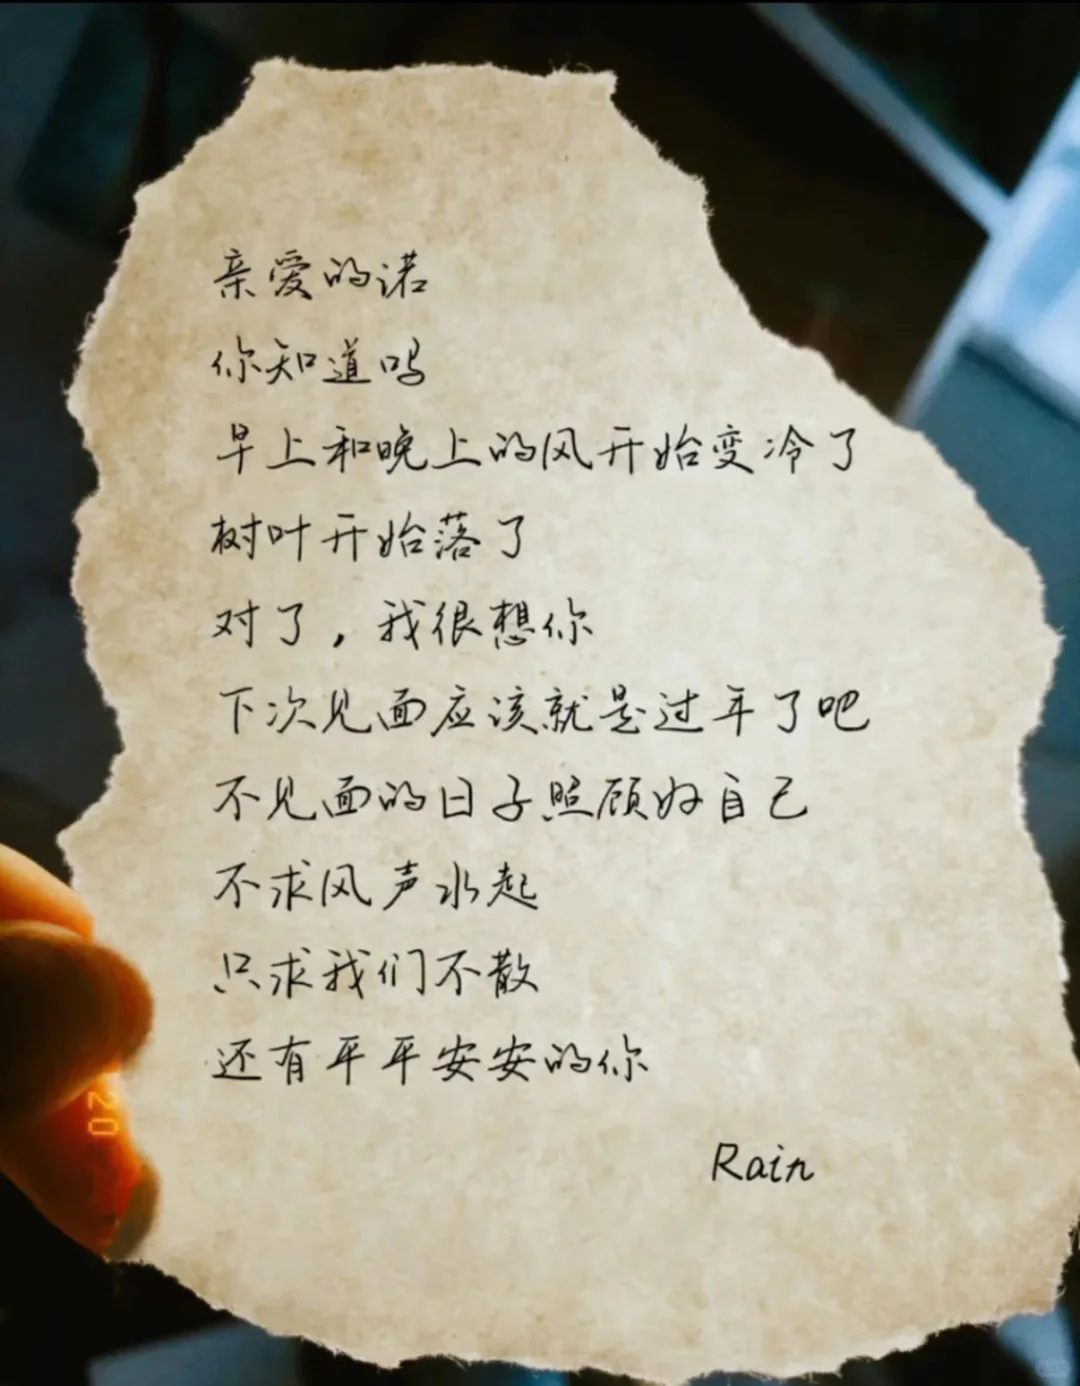 亲爱的诺
你知道吗
早上和晚上的风开始变冷了
树叶开始落了
对了，我很想你
下次见面应该就是过年了吧
不见面的日子照顾好自己
不求风声水起
只求我们不散
还有平平安安的你
Rain
20